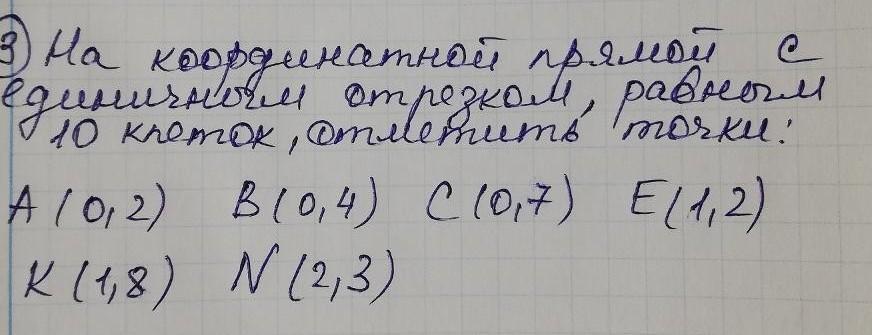 3) На координатной прямой с
единичным отрезком, равным
10 клеток, отметить точки:
A (0,2) B (0,4) C (0,7) E (1,2)
K (1,8) N (2,3)